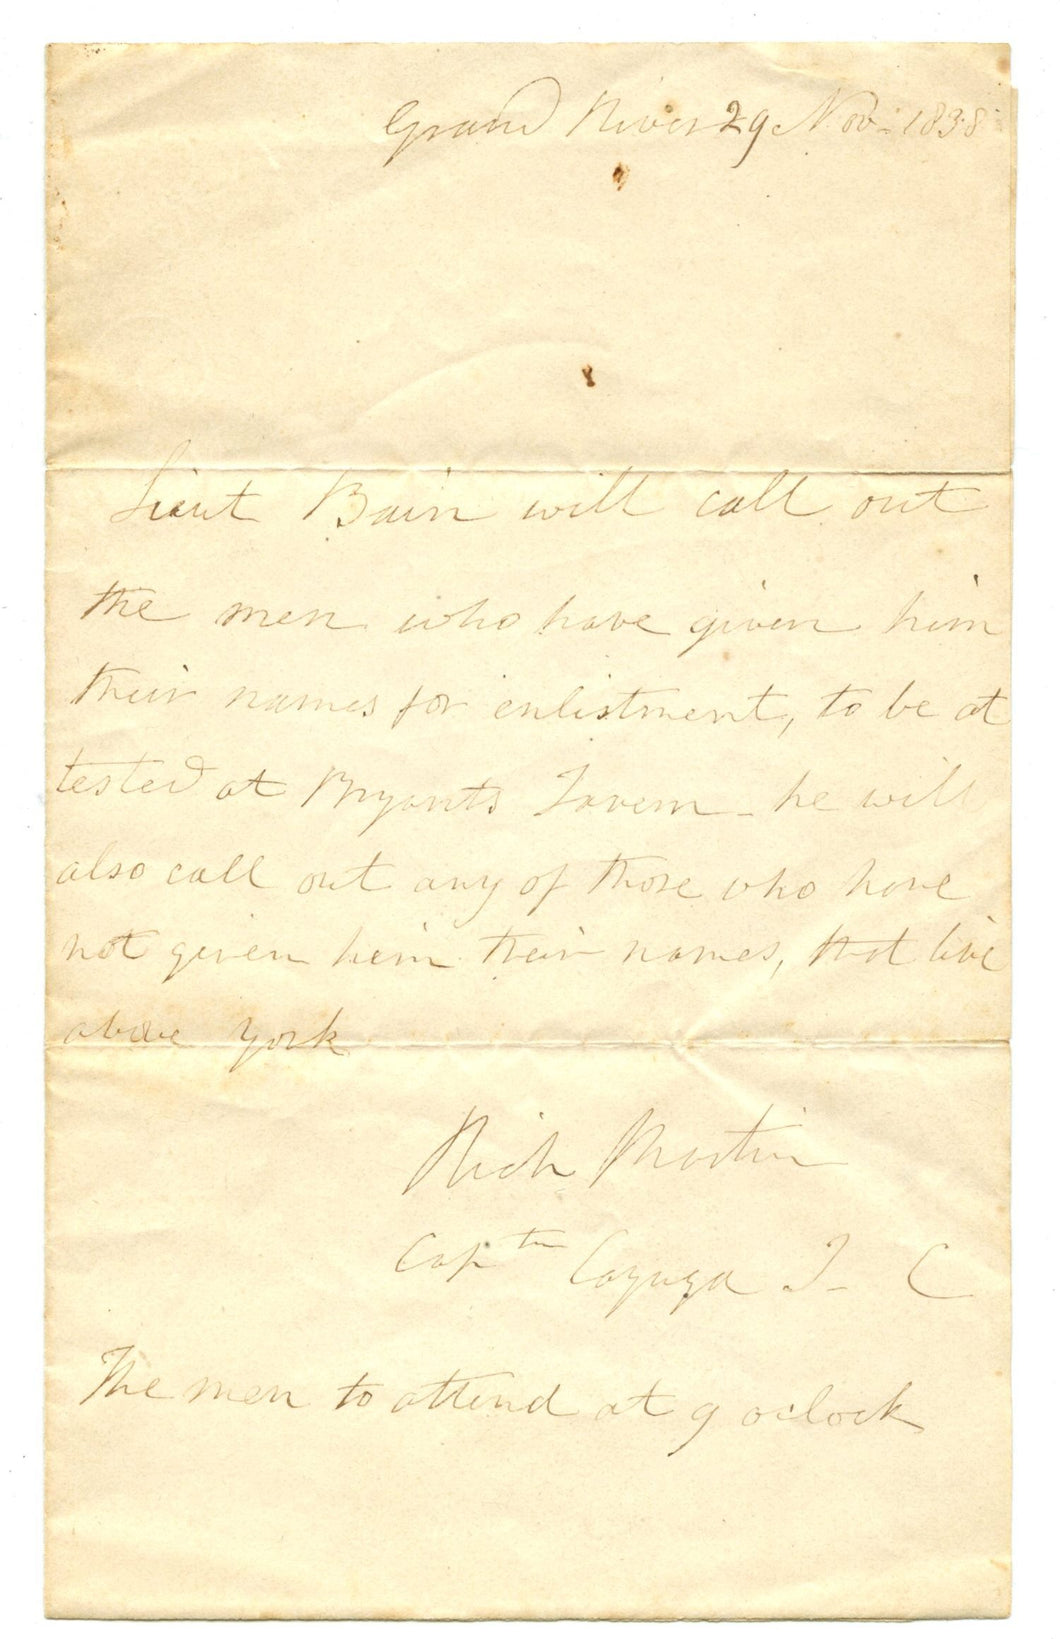 Grand River 29 Nov - 1838
Lieut Bain will call out
the men who have given him
their names for enlistment, to be at
tested at Bryants Tavern - he will
also call out any of those who have
not given him their names, that live
above York
Rich Martin
Captn Cayuga I - C
The men to attend at 9 oclock